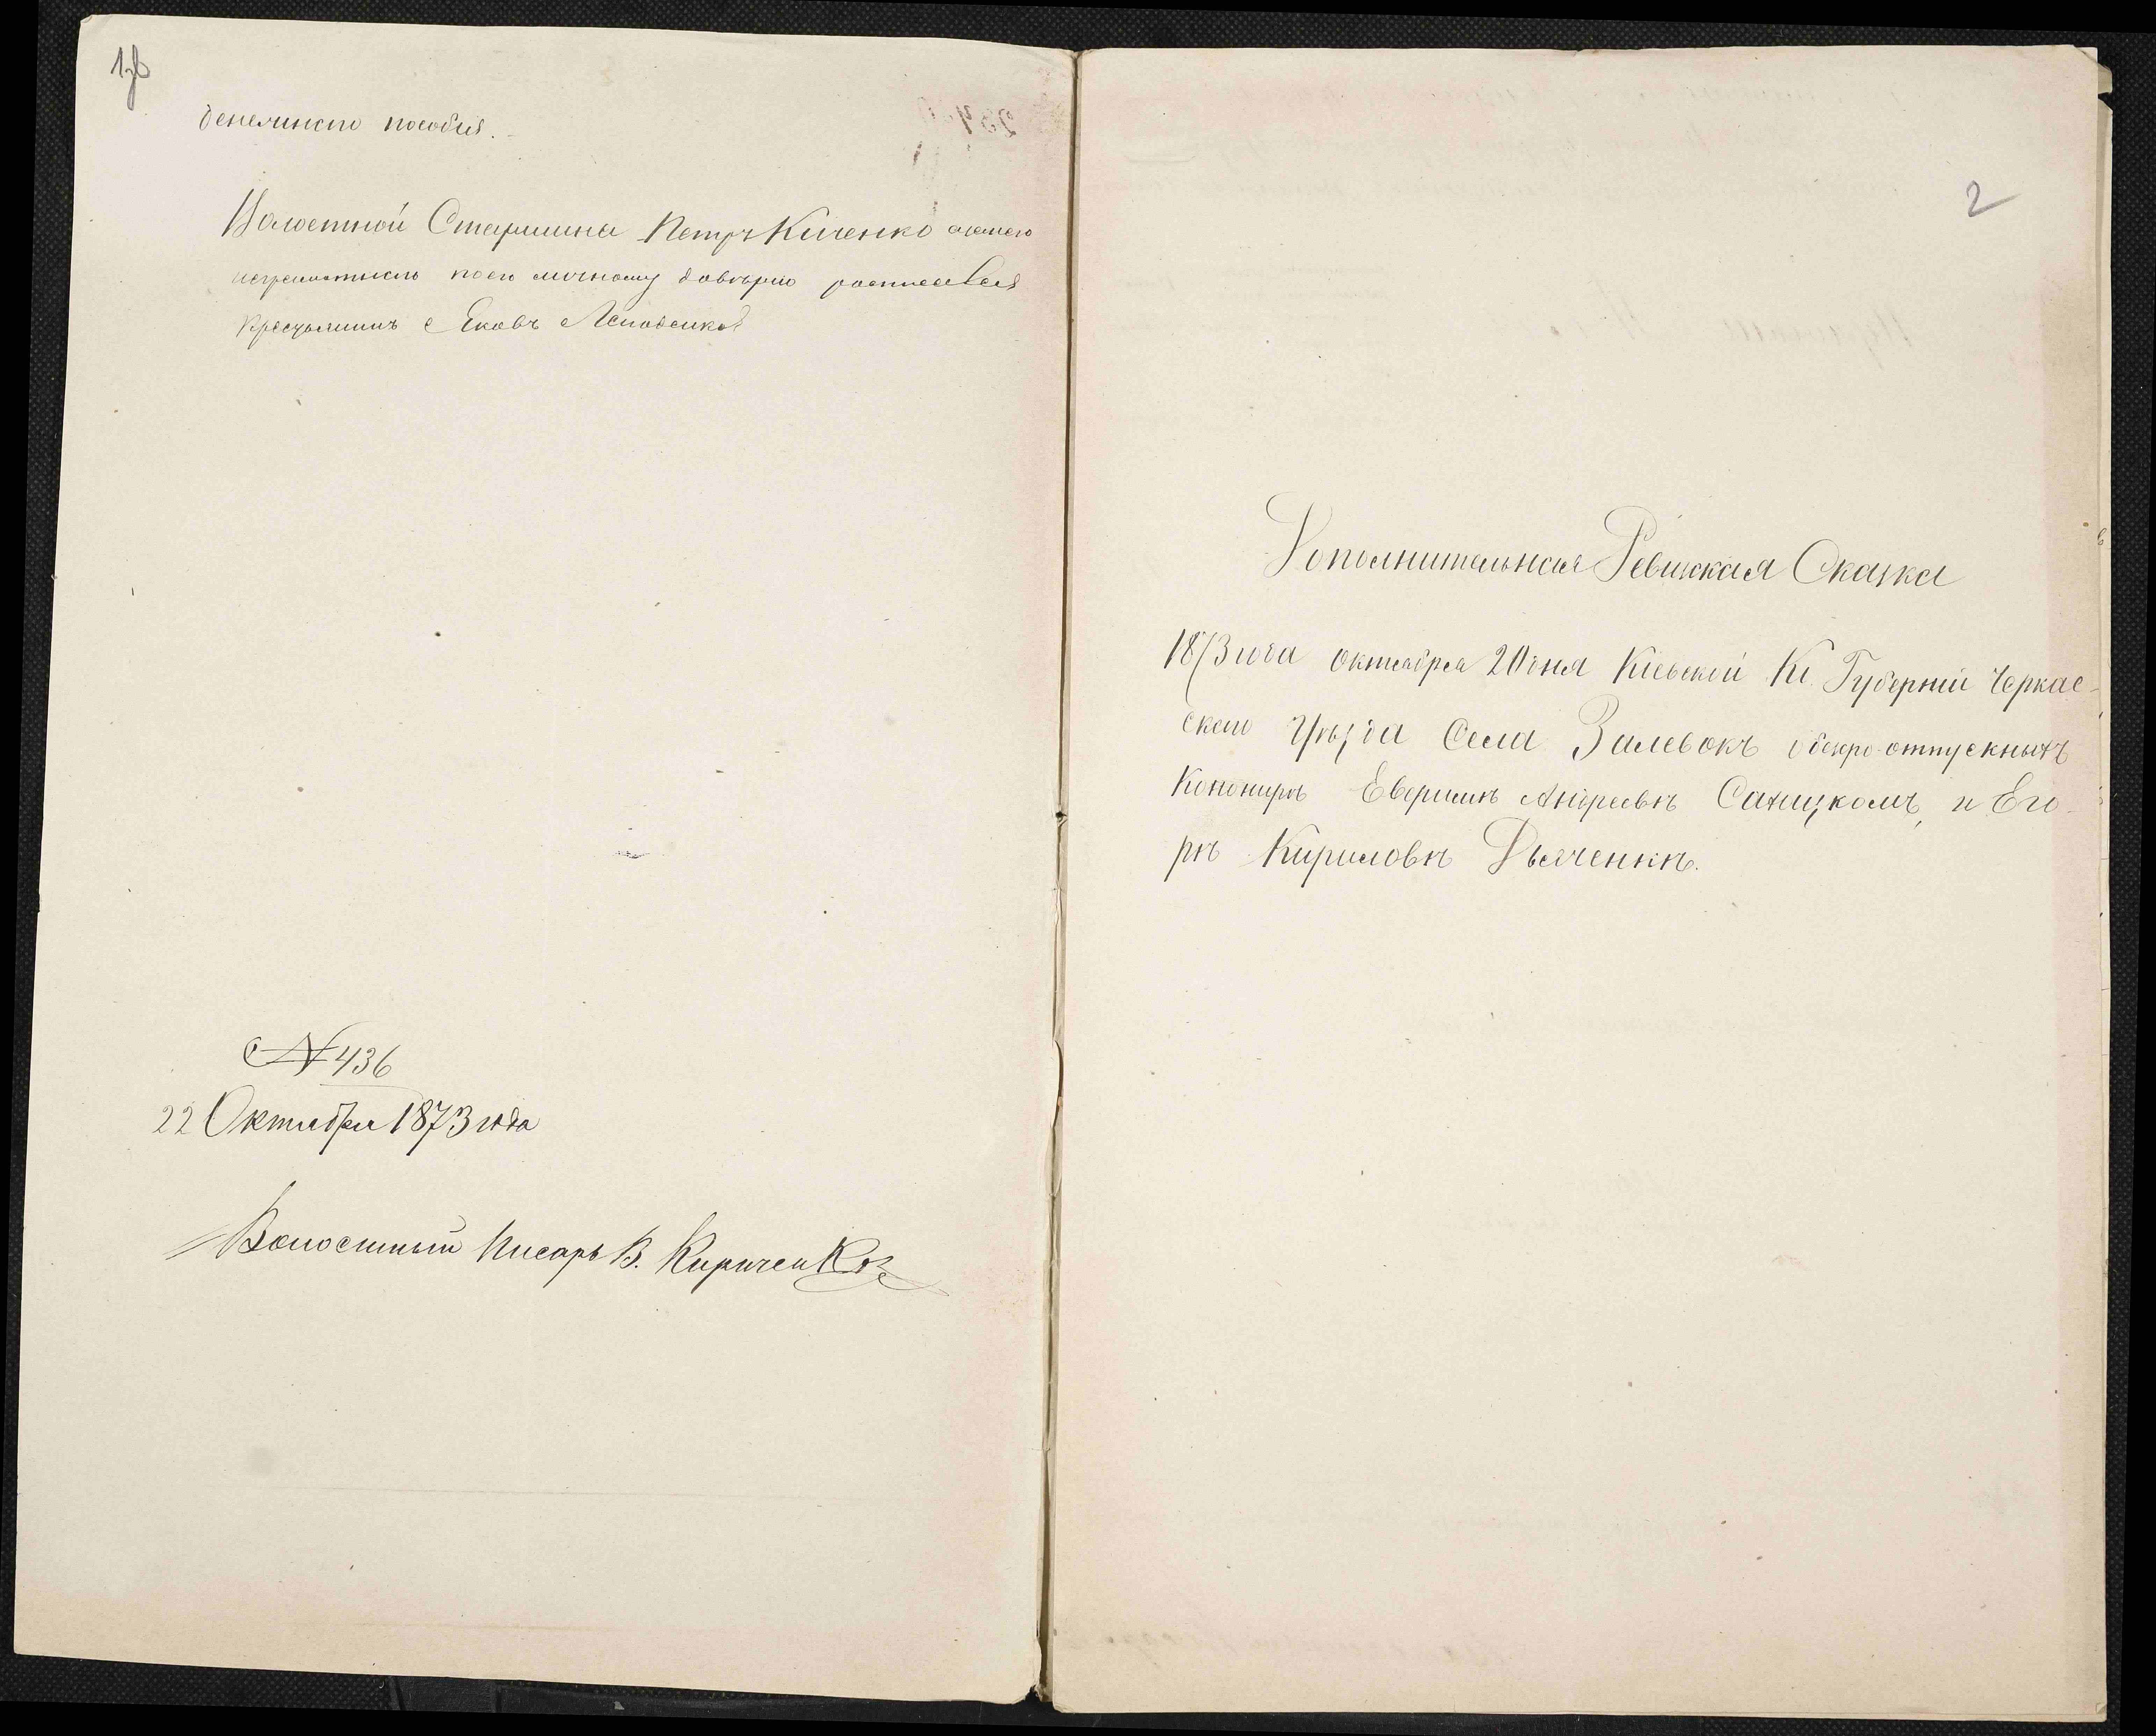 1зв
денежнаго пособия.
Волостной Старшина Петръ Киченко а за него
неграмотнаго по его личному доверию росписался
Кресьянинъ Яковъ
№ 436
22 Октября 1873 года
Волостный Писарь В. Кириченко
2
Дополнительная Ревизкая Сказка
1873 года октября 20 дня Кіевской Губерніи Черкас-
скаго Уѣзда Села Залевокъ о безсро-отпускныхъ
Канонирѣ Андреевѣ Сахацкомъ, и Его-
рѣ Кириловѣ Дьяченкѣ.